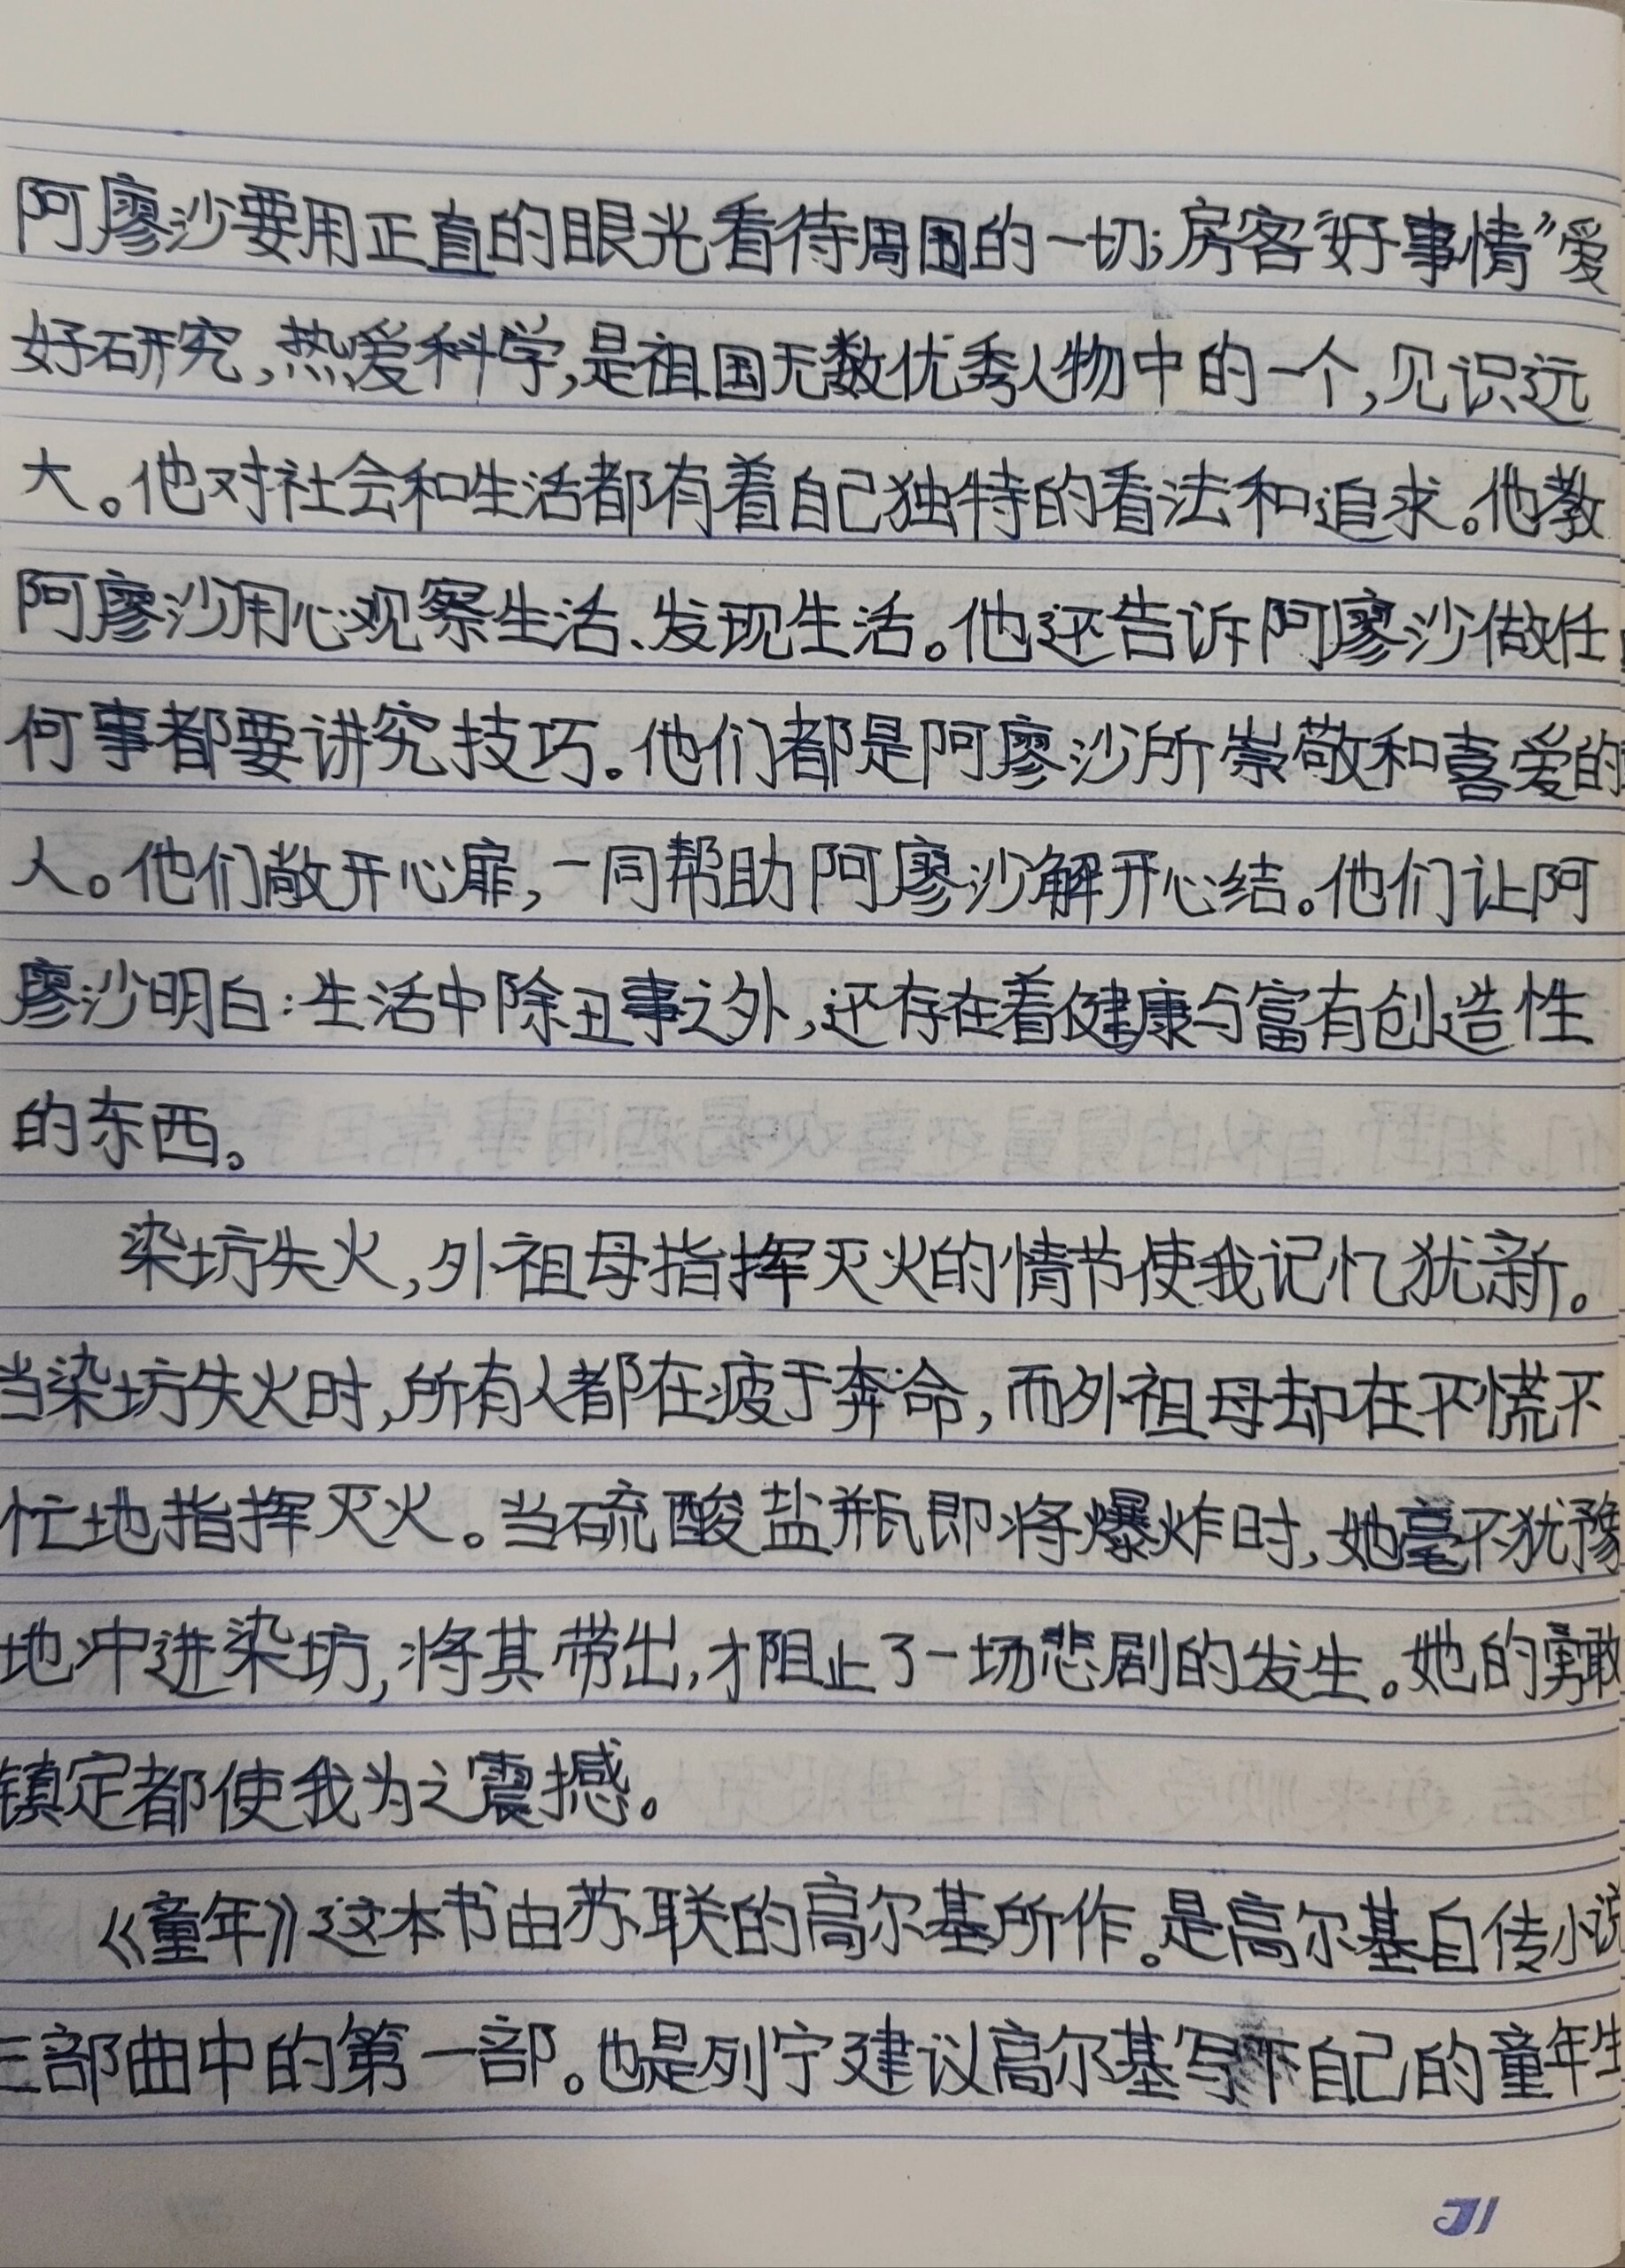 阿廖沙要用正直的眼光看待周围的一切；房客“好事情”爱
好研究,热爱科学,是祖国无数优秀人物中的一个,见识远
大。他对社会和生活都有着自己独特的看法和追求。他教
阿廖沙用心观察生活、发现生活。他还告诉阿廖沙做任
何事都要讲究技巧。他们都是阿廖沙所崇敬和喜爱的
人。他们敞开心扉,一同帮助阿廖沙解开心结。他们让阿
廖沙明白:生活中除丑事之外,还存在着健康与富有创造性
的东西。
染坊失火,外祖母指挥灭火的情节使我记忆犹新。
当染坊失火时,所有人都在疲于奔命,而外祖母却在不慌不
忙地指挥灭火。当硫酸盐瓶即将爆炸时,她毫不犹豫
地冲进染坊,将其带出,才阻止了一场悲剧的发生。她的勇敢
镇定都使我为之震撼。
《童年》这本书由苏联的高尔基所作。是高尔基自传小说
三部曲中的第一部。也是列宁建议高尔基写下自己的童年生